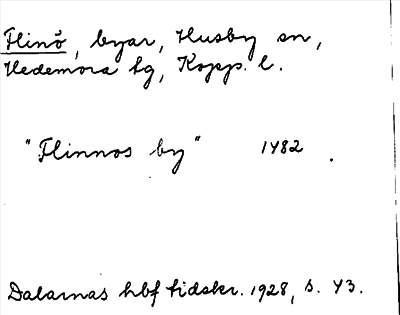 Flinö, byar, Husby sn,
Hedemora tg, Kopp. l.
"Flinnos by" 1482.
Dalarnas hbf tidskr. 1928, s. 43.